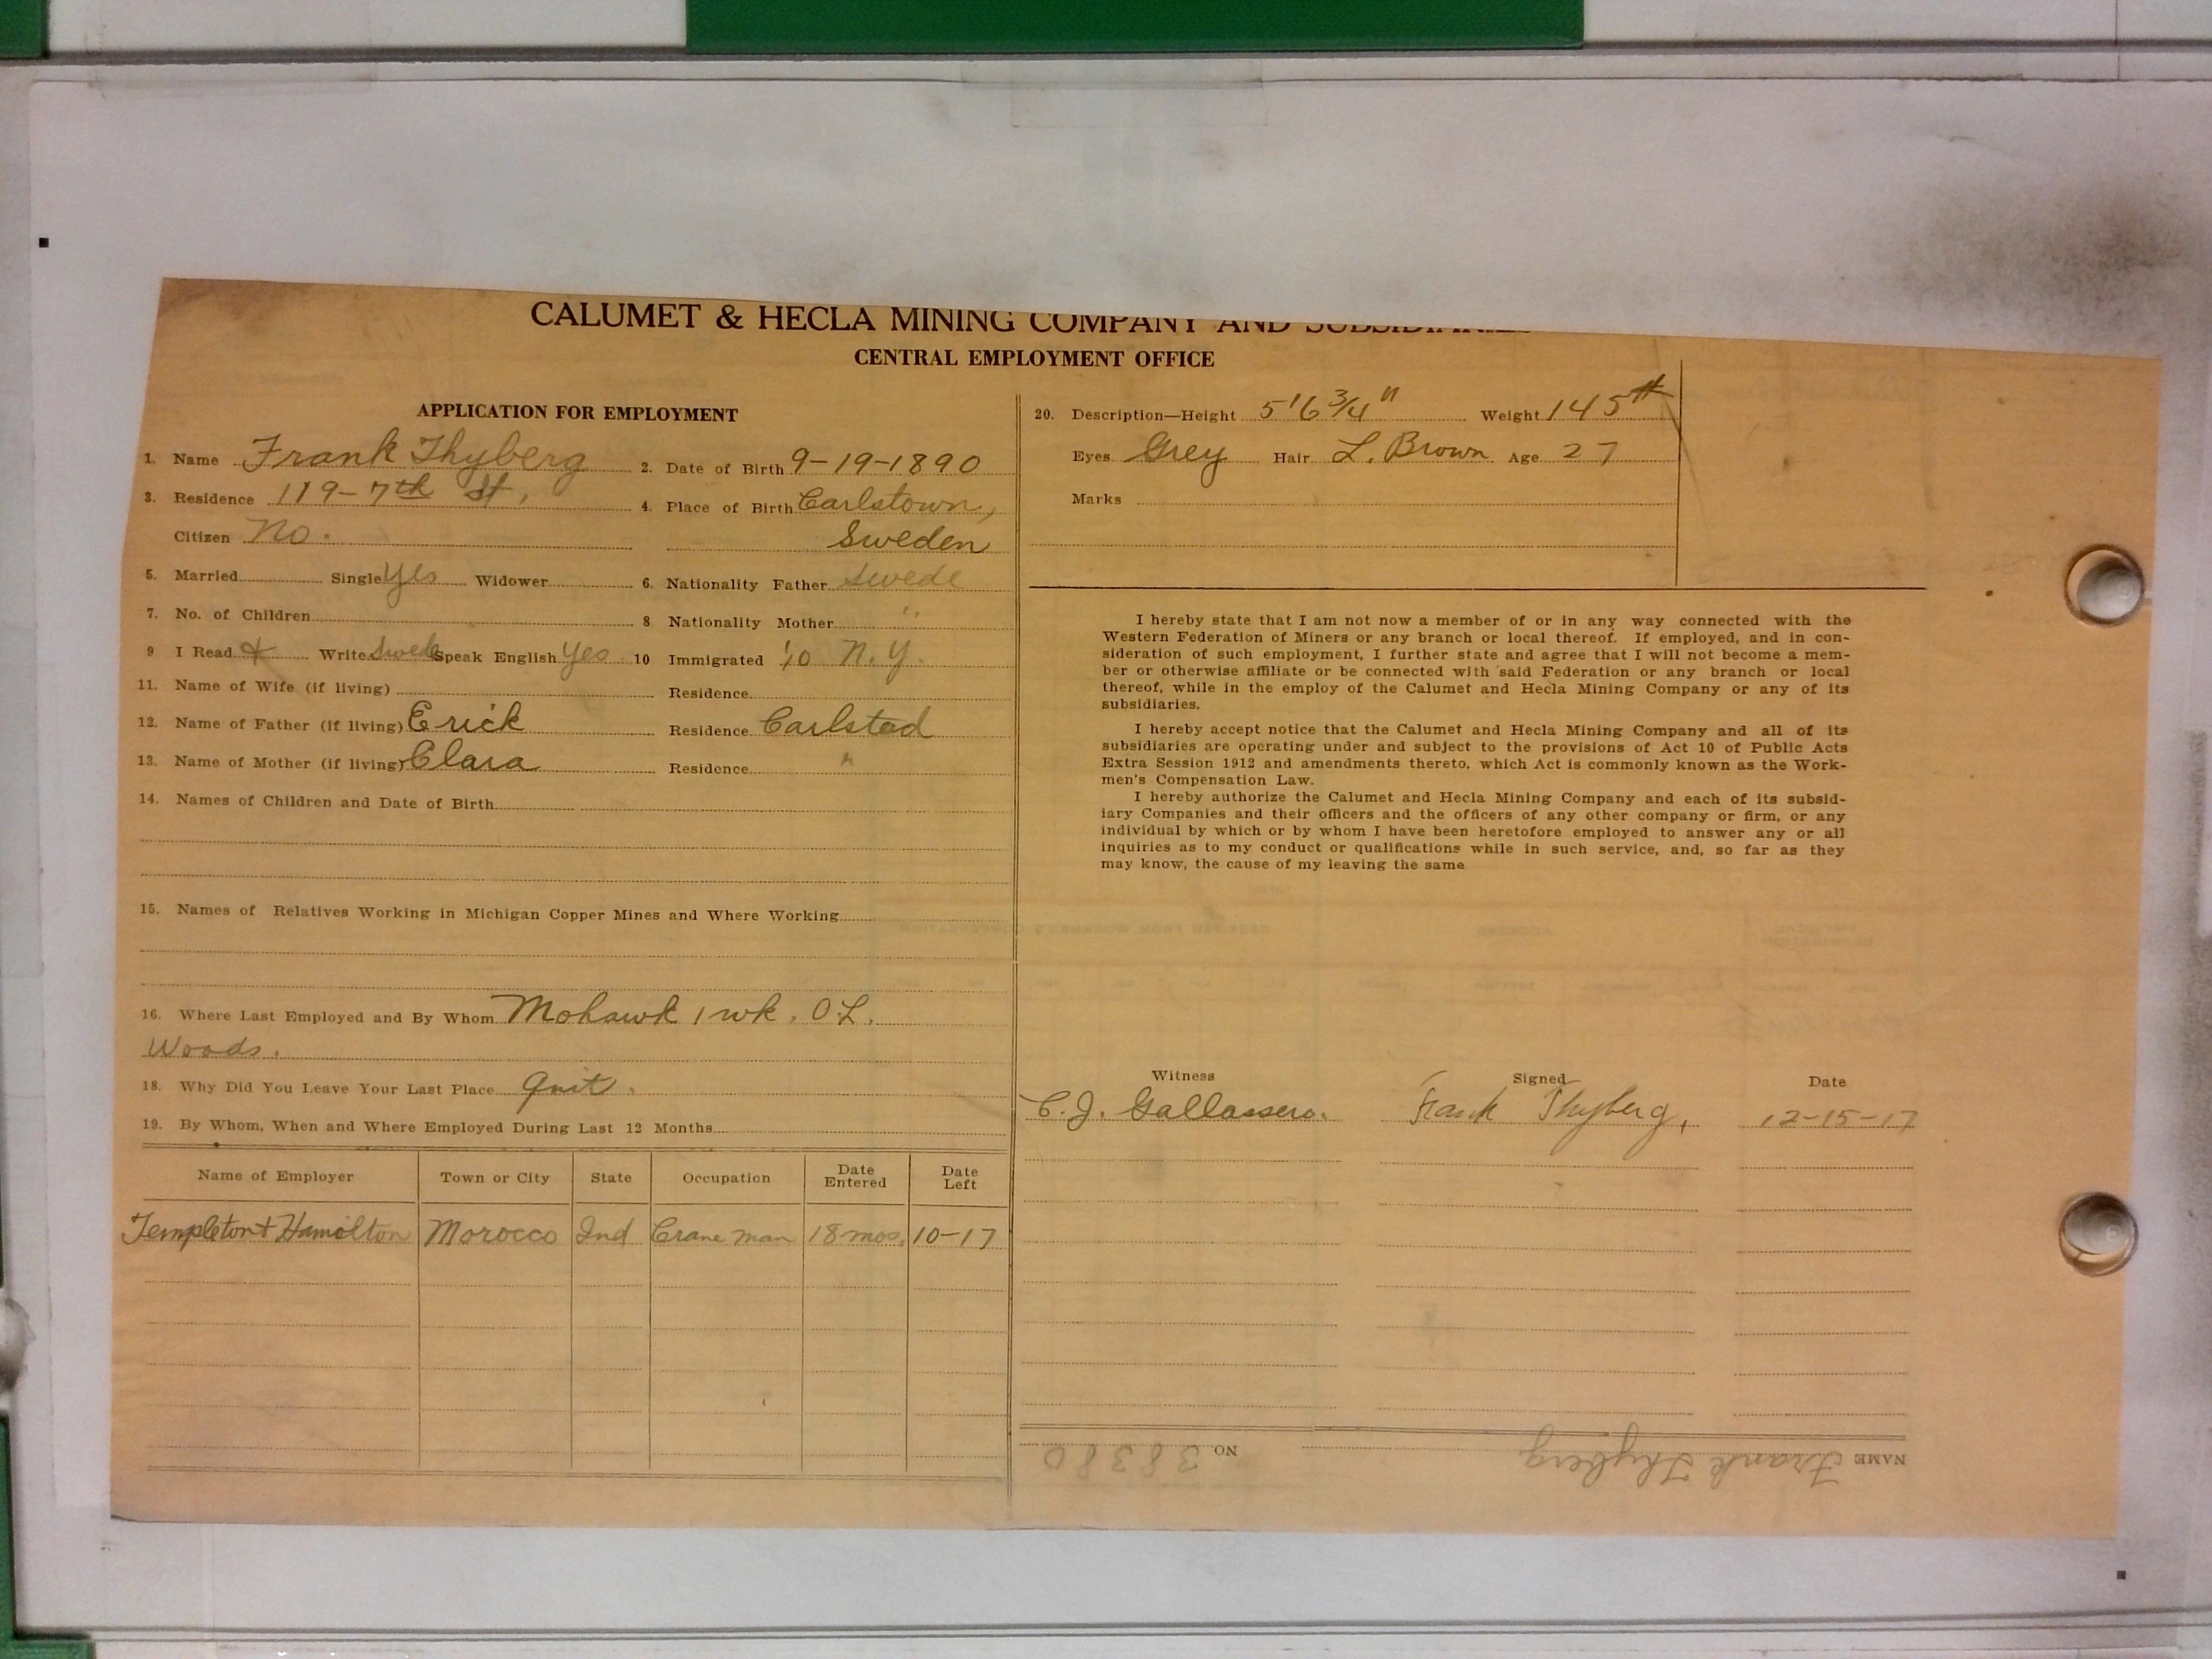 CALUMET & HECLA MINING COMPANY AND SUBSIDIARIES
CENTRAL EMPLOYMENT OFFICE
APPLICATION FOR EMPLOYMENT
1. Name Frank Thyberg 2. Date of Birth 9-19-1890
3. Residence 119-7th St, 4. Place of Birth Carlstown,
Citizen No. Sweden
5. Married Single Yes Widower 6. Nationality Father Swede
7. No. of Children 8 Nationality Mother "
9 I Read & Write Swede Speak English Yes 10 Immigrated '10 N.Y.
11. Name of Wife (if living) Residence
12. Name of Father (if living) Erick Residence Carlstad
13. Name of Mother (if living) Clara Residence "
14. Names of Children and Date of Birth
15. Names of Relatives Working in Michigan Copper Mines and Where Working
16. Where Last Employed and By Whom Mohawk 1 wk. O.L.
Woods.
18. Why Did You Leave Your Last Place Quit.
19. By Whom, When and Where Employed During Last 12 Months
Name of Employer Town or City State Occupation Date Entered Date Left
Templeton & Hamilton Morocco Ind Crane man 18 mos. 10-17
20. Description—Height 5'6 3/4" Weight 145#
Eyes Grey Hair L. Brown Age 27
Marks
I hereby state that I am not now a member of or in any way connected with the
Western Federation of Miners or any branch or local thereof. If employed, and in con-
sideration of such employment, I further state and agree that I will not become a mem-
ber or otherwise affiliate or be connected with said Federation or any branch or local
thereof, while in the employ of the Calumet and Hecla Mining Company or any of its
subsidiaries.
I hereby accept notice that the Calumet and Hecla Mining Company and all of its
subsidiaries are operating under and subject to the provisions of Act 10 of Public Acts
Extra Session 1912 and amendments thereto, which Act is commonly known as the Work-
men's Compensation Law.
I hereby authorize the Calumet and Hecla Mining Company and each of its subsid-
iary Companies and their officers and the officers of any other company or firm, or any
individual by which or by whom I have been heretofore employed to answer any or all
inquiries as to my conduct or qualifications while in such service, and, so far as they
may know, the cause of my leaving the same
Witness Signed Date
C.J. Gallassero. Frank Thyberg, 12-15-17
NAME Frank Thyberg NO 38380